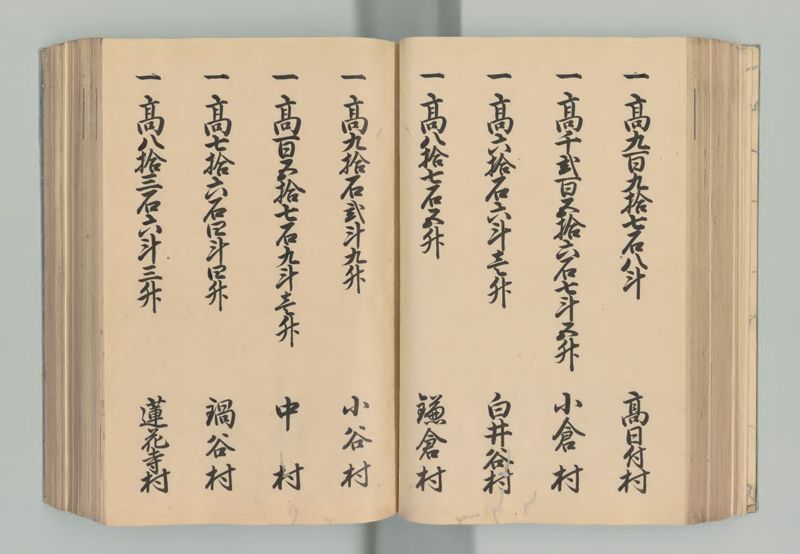 一 高九百九拾七石八斗 高日付村
一 高千弐百五拾六石七斗五升 小倉村
一 高六拾石六斗壱升 白井谷村
一 高八拾七石五升 鎌倉村
一 高九拾石弐斗九升 小谷村
一 高百五拾七石九斗壱升 中村
一 高七拾六石四斗四升 鍋谷村
一 高八拾三石六斗三升 蓮花寺村